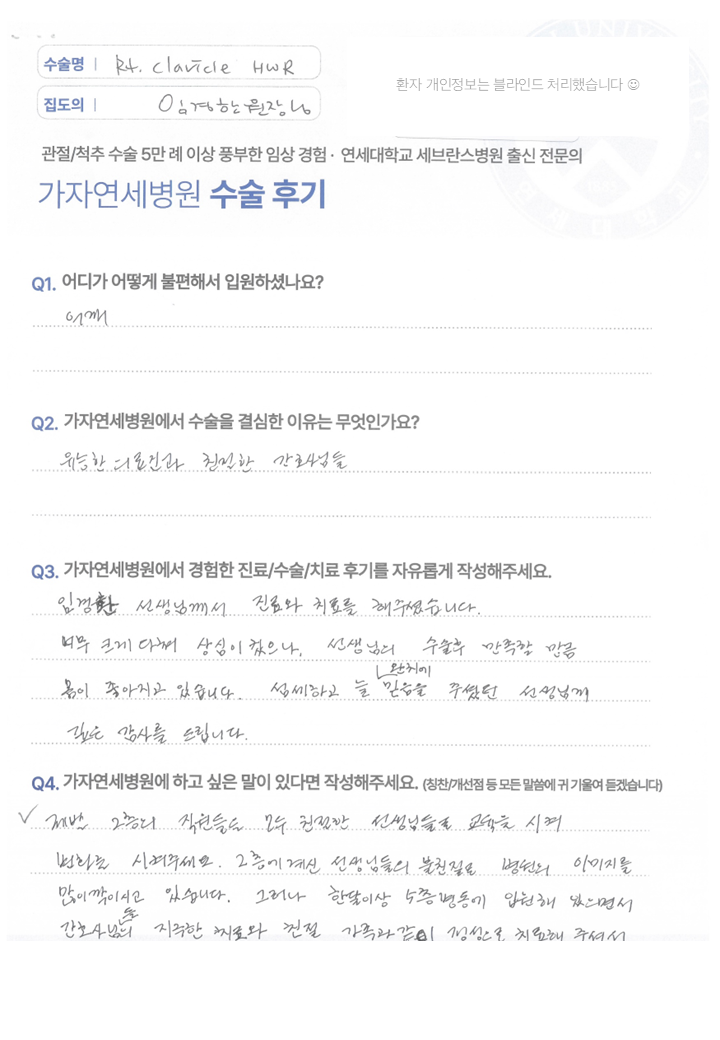 수술명 | Rt. Clavicle HWR
집도의 | 임경한 원장님
환자 개인정보는 블라인드 처리했습니다 ☺
관절/척추 수술 5만 례 이상 풍부한 임상 경험 · 연세대학교 세브란스병원 출신 전문의
가자연세병원 수술 후기
Q1. 어디가 어떻게 불편해서 입원하셨나요?
어깨
Q2. 가자연세병원에서 수술을 결심한 이유는 무엇인가요?
유능한 의료진과 친절한 간호사님들
Q3. 가자연세병원에서 경험한 진료/수술/치료 후기를 자유롭게 작성해주세요.
임경환 선생님께서 진료와 치료를 해주셨습니다.
너무 크게 다쳐 상심이 컸으나, 선생님의 수술후 만족할 만큼
완치에
몸이 좋아지고 있습니다. 섬세하고 늘 믿음을 주셨던 선생님께
깊은 감사를 드립니다.
Q4. 가자연세병원에 하고 싶은 말이 있다면 작성해주세요. (칭찬/개선점 등 모든 말씀에 귀 기울여 듣겠습니다)
✓ 제발 2층의 직원들도 모두 친절한 선생님들로 교육을 시켜
변화를 시켜주세요. 2층에 계신 선생님들의 불친절로 병원의 이미지를
많이 깍이시고 있습니다. 그러나 한달이상 5층병동에 입원해 있으면서
간호사님들의 지극한 치료와 친절 가족과 같이 정성으로 치료해 주셔서